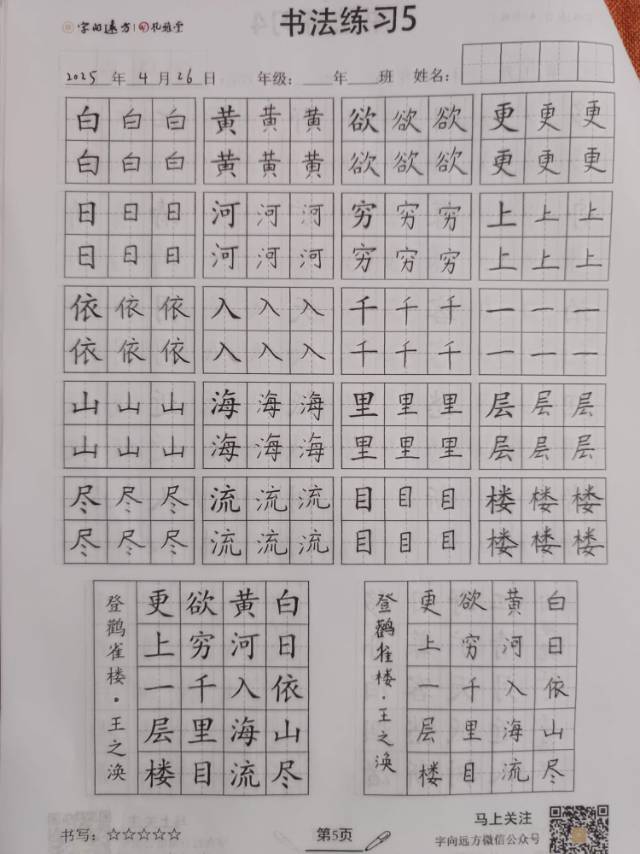 字向远方
书法练习5
2025年4月26日 年级：___年___班 姓名：
白白白 黄黄黄 欲欲欲 更更更
白白白 黄黄黄 欲欲欲 更更更
日日日 河河河 穷穷穷 上上上
日日日 河河河 穷穷穷 上上上
依依依 入入入 千千千 一一一
依依依 入入入 千千千 一一一
山山山 海海海 里里里 层层层
山山山 海海海 里里里 层层层
尽尽尽 流流流 目目目 楼楼楼
尽尽尽 流流流 目目目 楼楼楼
白日依山尽
黄河入海流
欲穷千里目
更上一层楼
登鹳雀楼·王之涣
白日依山尽
黄河入海流
欲穷千里目
更上一层楼
登鹳雀楼·王之涣
书写：☆☆☆☆☆
第5页
马上关注
字向远方微信公众号